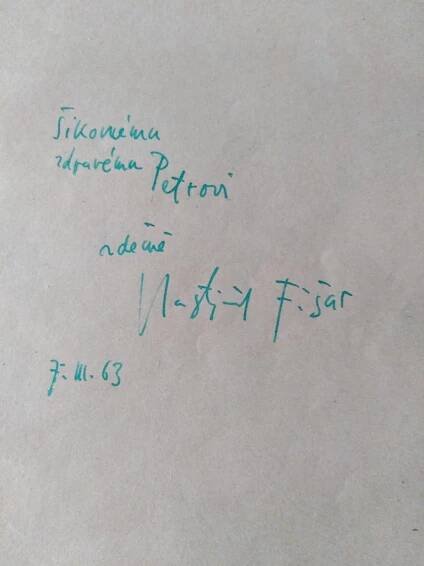 Šikovnému
zdravému Petrovi
vděčně
Vlastimil Fišar
7. III. 63